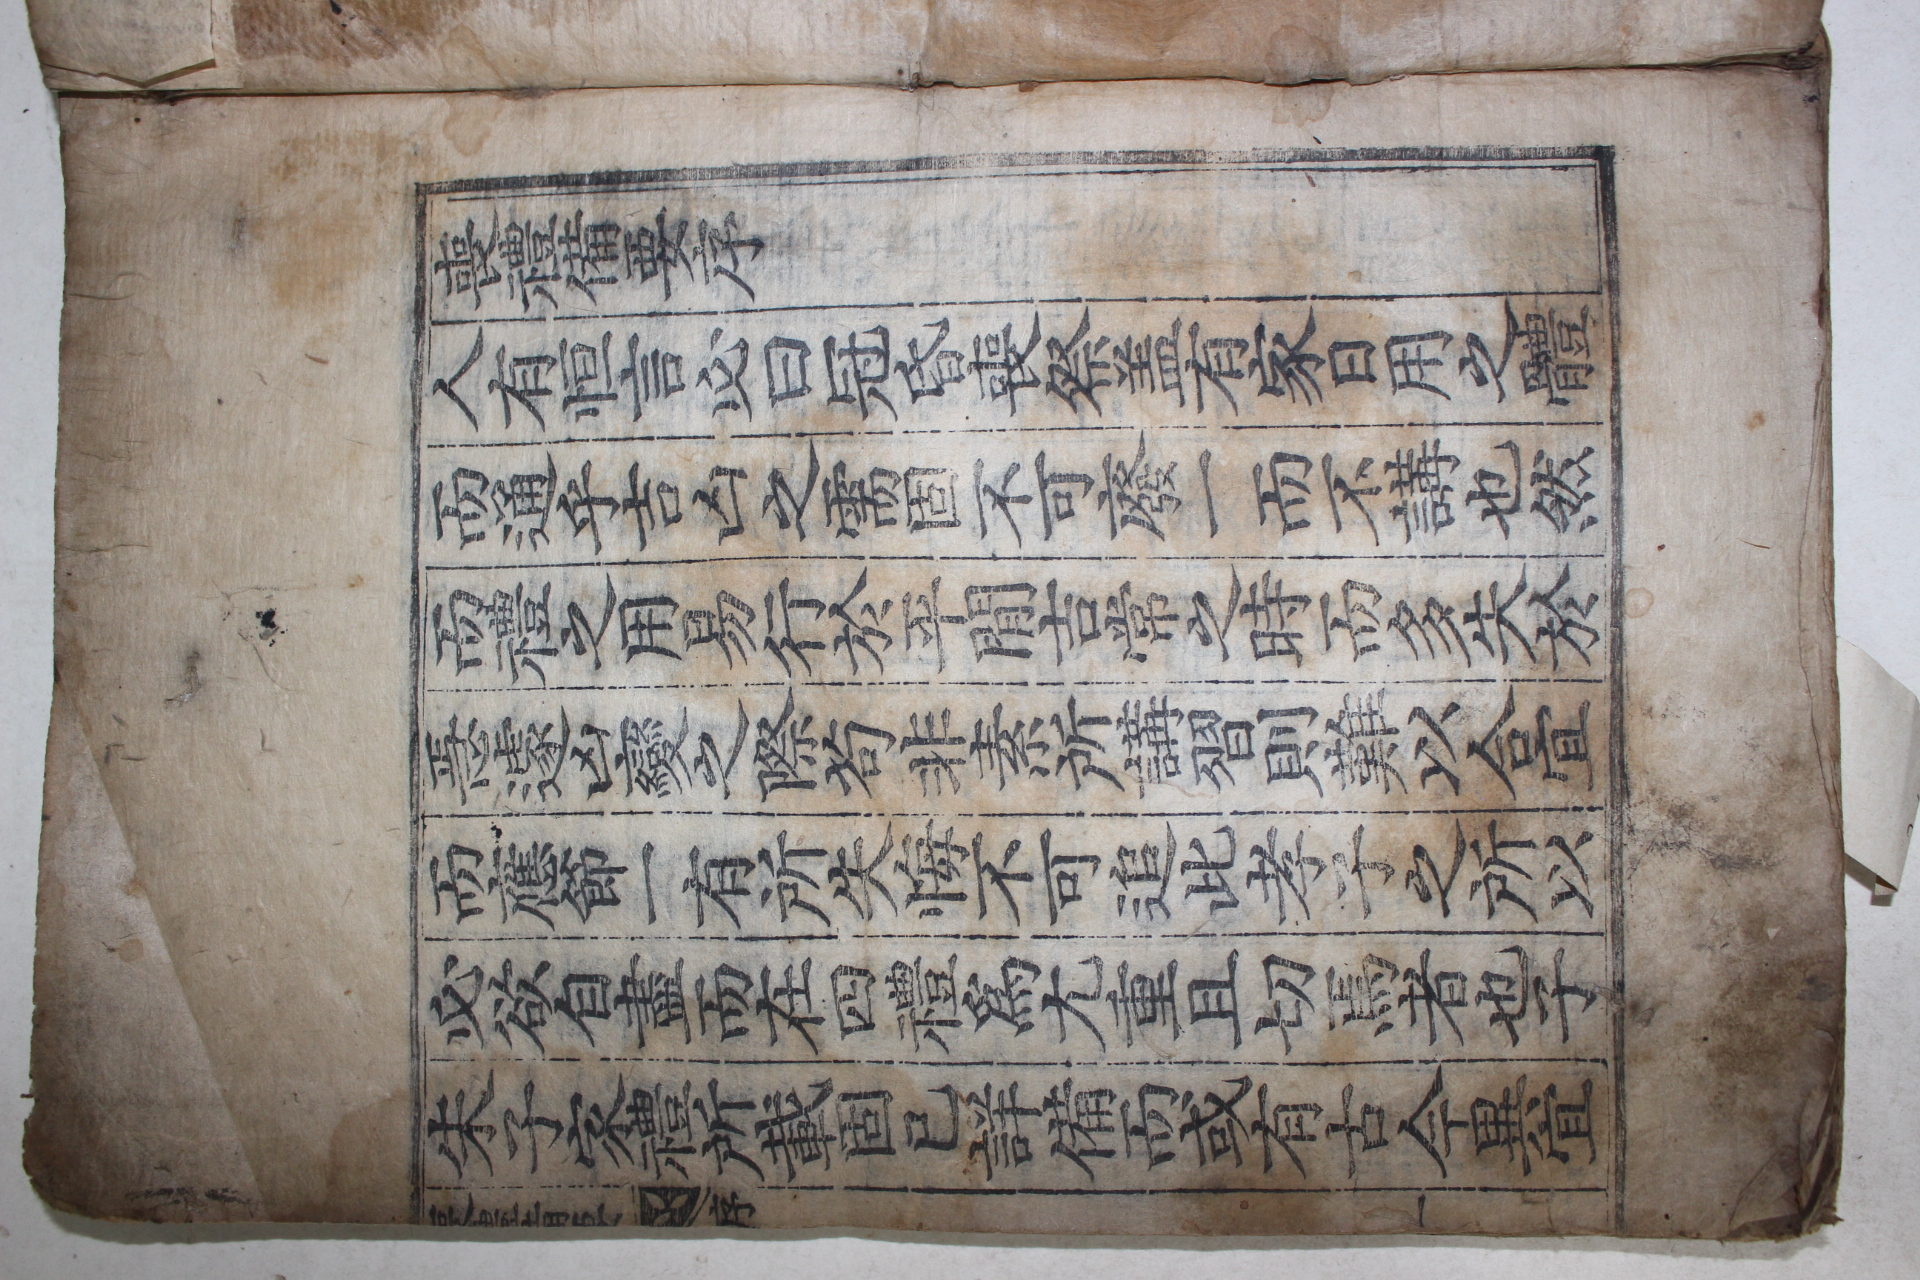 喪禮備要序
人有恒言必曰冠昏喪祭盖有家日用之體
而通乎吉凶之需固不可廢一而不講也然
而禮之用易行於平閒吉常之時而多失於
急遽凶變之際苟非素所講習則難以合宜
而應節一有所失悔不可追此孝子之所以
必欲自盡而在四禮爲尤重且切焉者也子
朱子家禮所載固已詳備而或有古今異宜
喪禮備要 序 一